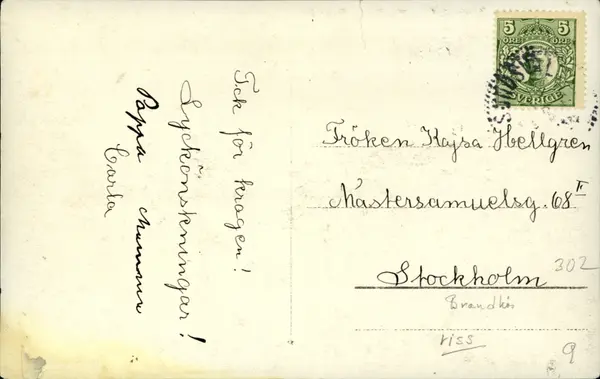 Tck för kragen!
Lyckönskningar!
Pappa Mamma
Carla
5 5
ÖRE ÖRE
SVERIGE
Fröken Kajsa Hellgren
Mästersamuelsg. 68 II
Stockholm
302
riss
9